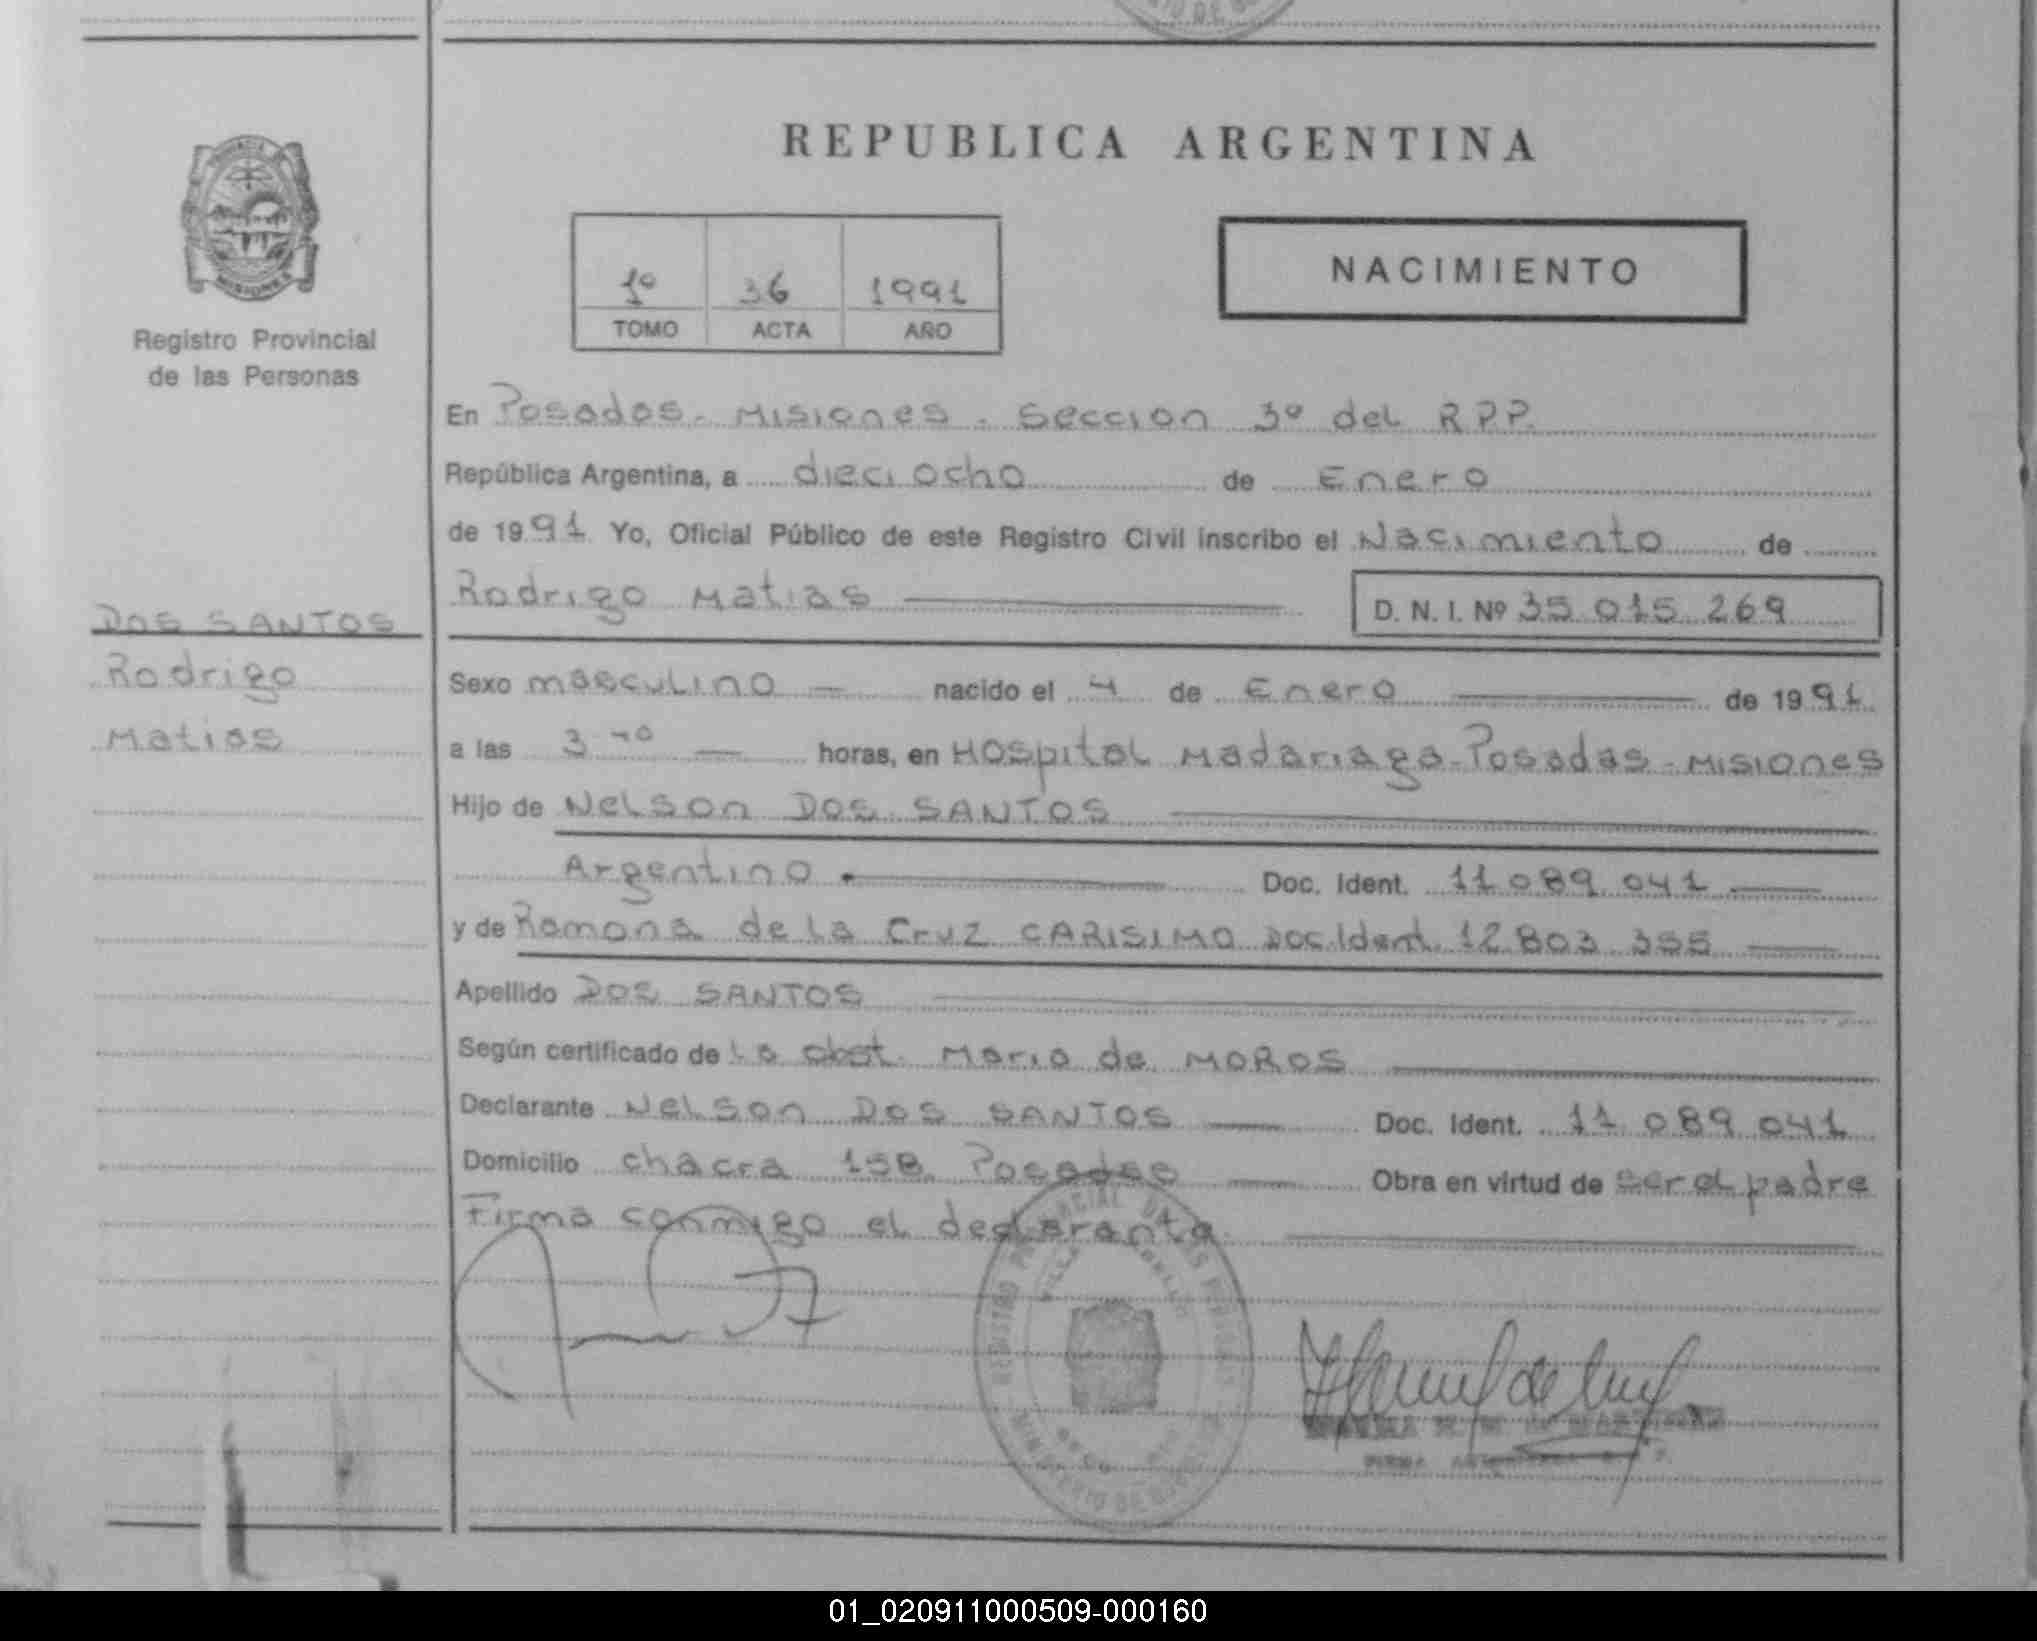 REPUBLICA ARGENTINA
MISIONES
Registro Provincial
de las Personas
1º 36 1991
TOMO ACTA AÑO
NACIMIENTO
En Posadas - Misiones - Seccion 3º del R.P.P.
República Argentina, a dieciocho de Enero
de 1991 Yo, Oficial Público de este Registro Civil inscribo el Nacimiento de
Rodrigo Matias D. N. I. Nº 35 015 269
DOS SANTOS
Rodrigo
Matias
Sexo masculino nacido el 4 de Enero de 1991
a las 3 horas, en Hospital Madariaga - Posadas - Misiones
Hijo de Nelson DOS SANTOS
Argentino Doc. Ident. 11 089 041
y de Ramona de la Cruz CARISIMO Doc. Ident. 12 803 355
Apellido DOS SANTOS
Según certificado de la obst. Maria de MOROS
Declarante Nelson DOS SANTOS Doc. Ident. 11 089 041
Domicilio chacra 158 Posadas Obra en virtud de ser el padre
Firma conmigo el declarante
REGISTRO PROVINCIAL DE LAS PERSONAS
MINISTERIO DE GOBIERNO
01_020911000509-000160